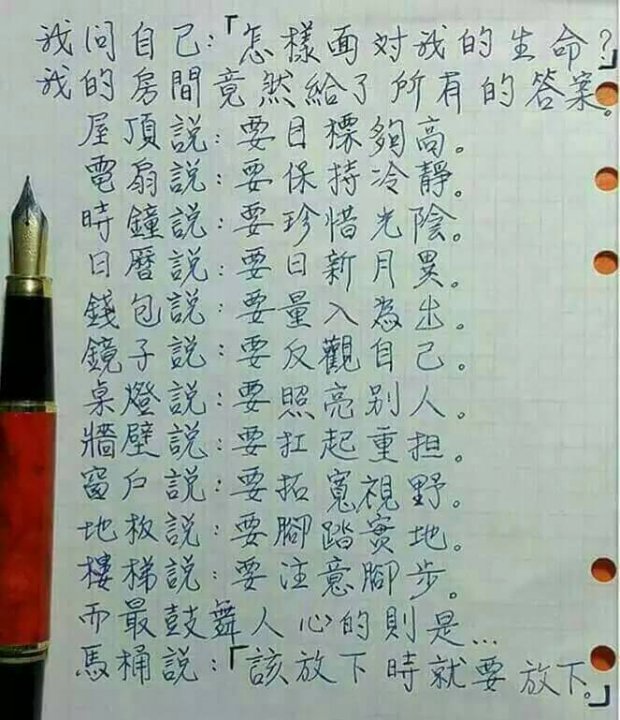 我問自己:「怎樣面對我的生命?」
我的房間竟然給了所有的答案。
屋頂說:要目標夠高。
電扇說:要保持冷靜。
時鐘說:要珍惜光陰。
日曆說:要日新月異。
錢包說:要量入為出。
鏡子說:要反觀自己。
桌燈說:要照亮別人。
牆壁說:要扛起重担。
窗戶說:要拓寬視野。
地板說:要腳踏實地。
樓梯說:要注意腳步。
而最鼓舞人心的則是...
馬桶說:「該放下時就要放下。」